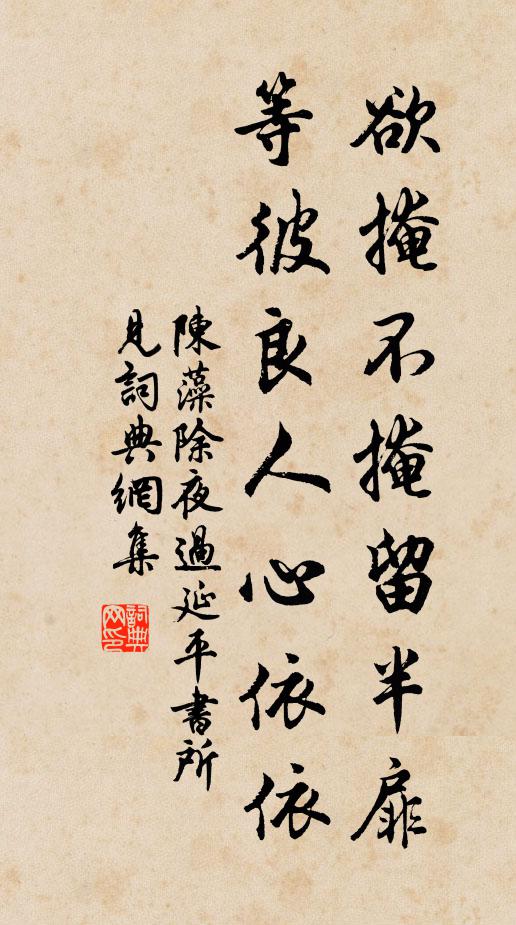 欲掩不掩留半扉
等彼良人心依依
陳藻除夜過延平書所
見詞典網集
詞典
网印